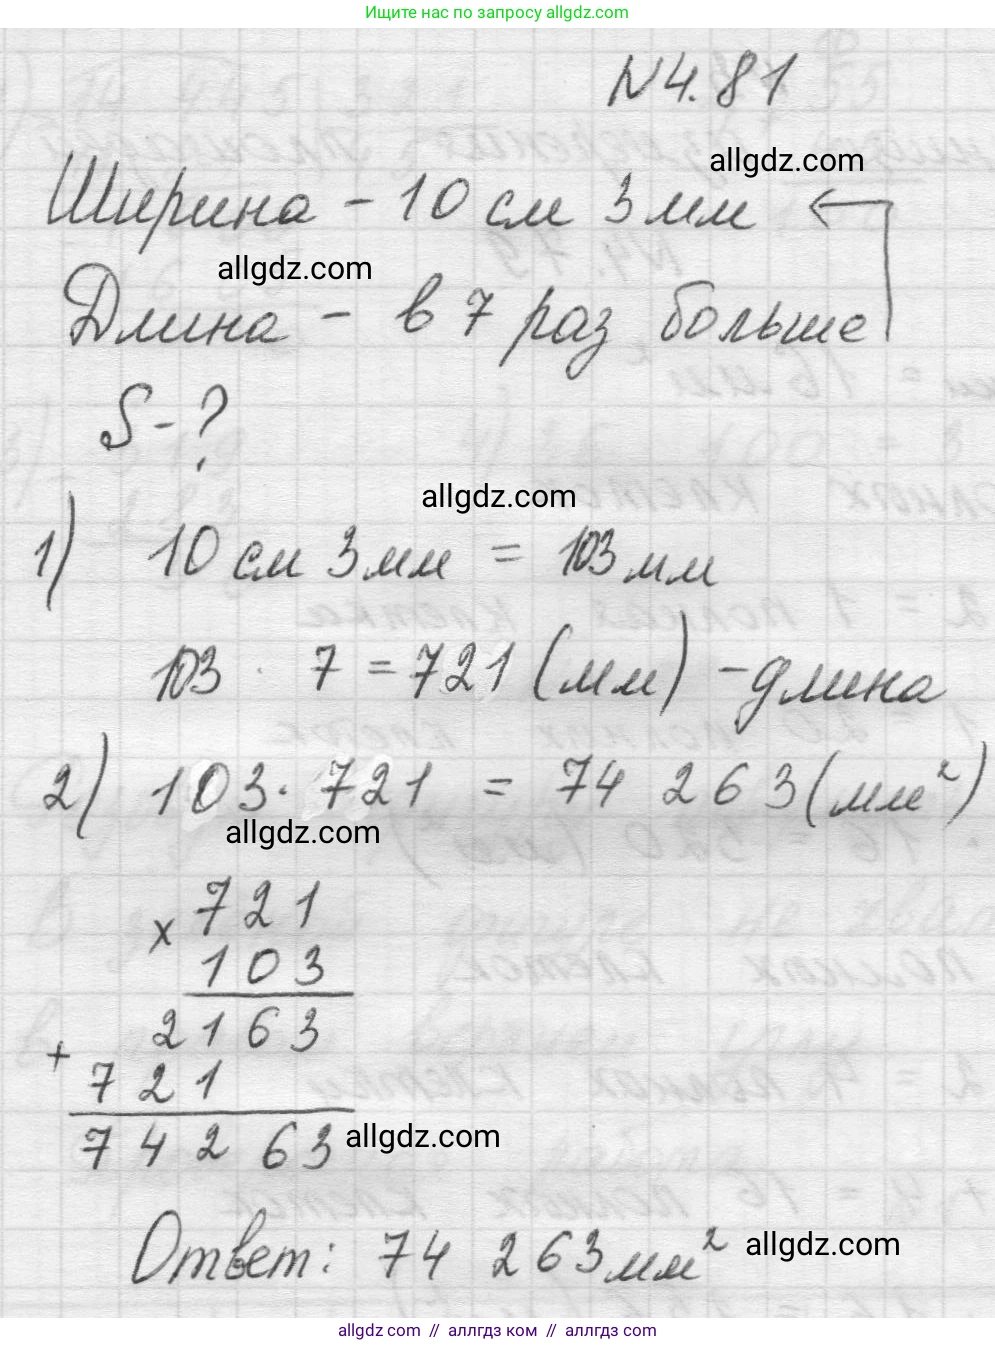 Ищите нас по запросу allgdz.com
N4.81
allgdz.com
Ширина - 10 см 3 мм
allgdz.com
Длина - в 7 раз больше
S - ?
allgdz.com
1) 10 см 3 мм = 103 мм
103 · 7 = 721 (мм) - длина
2) 103 · 721 = 74 263 (мм²)
allgdz.com
x 721
103
2163
+ 721
74263
allgdz.com
Ответ: 74 263 мм²
allgdz.com
allgdz.com // аллгдз ком // allgdz.com